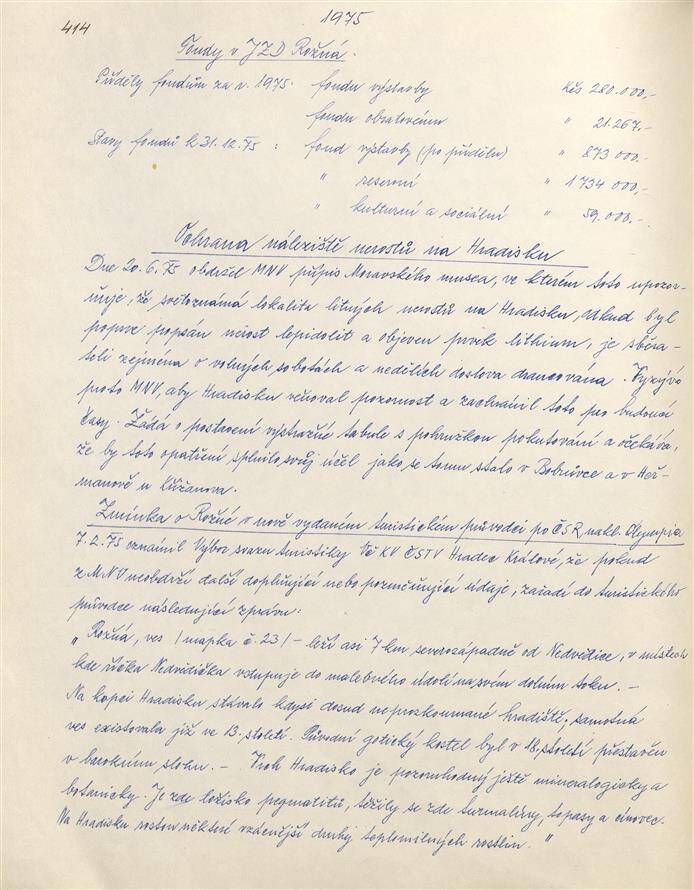 414
1975
Fondy v JZD Rožná.
Příděly fondům za r. 1975. fondu výstavby Kčs 280.000,-
fondu obratovému " 21.267.-
Stavy fondů k 31.12.75 : fond výstavby (po přídělu) " 873 000.-
" reservní " 1 734 000,-
" kulturní a sociální " 59.000.-
Ochrana náleziště nerostů na Hradisku
Dne 20.6.75 obdržel MNV přípis Moravského musea, ve kterém toto upozor-
ňuje, že světoznámá lokalita litných nerostů na Hradisku, odkud byl
poprve popsán nerost lepidolit a objeven prvek lithium, je sběra-
teli zejména o volných sobotách a nedělích doslova drancována. Vyzývá
proto MNV, aby Hradisku věnoval pozornost a zachránil toto pro budoucí
časy. Žádá o postavení výstražné tabule s pohrůžkou pokutování a očekává,
že by toto opatření splnilo svůj účel jako se tomu stalo v Bobrůvce a v Heř-
manově u Křižanova.
Zmínka o Rožné v nově vydaném turistickém průvodci po ČSR, nakl. Olympia
7.2.75 oznámil Výbor svazu turistiky VČ KV ČSTV Hradec Králové, že pokud
z MNV neobdrží další doplňující nebo pozměňující údaje, zařadí do turistického
průvodce následující zprávu:
„Rožná, ves /mapka č. 23/ - leží asi 7 km severozápadně od Nedvědice, v místech
kde říčka Nedvědička vstupuje do malebného údolí na svém dolním toku. -
Na kopci Hradisku, stávalo kdysi dosud neprozkoumané hradiště; samotná
ves existovala již ve 13. století. Původní gotický kostel byl v 18. století přestavěn
v barokním slohu. - Vrch Hradisko je pozoruhodný ještě mineralogicky a
botanicky. Je zde ložisko pegmatitů, těžily se zde turmalíny, topasy a cínovec.
Na Hradisku rostou některé vzácnější druhy teplomilných rostlin."